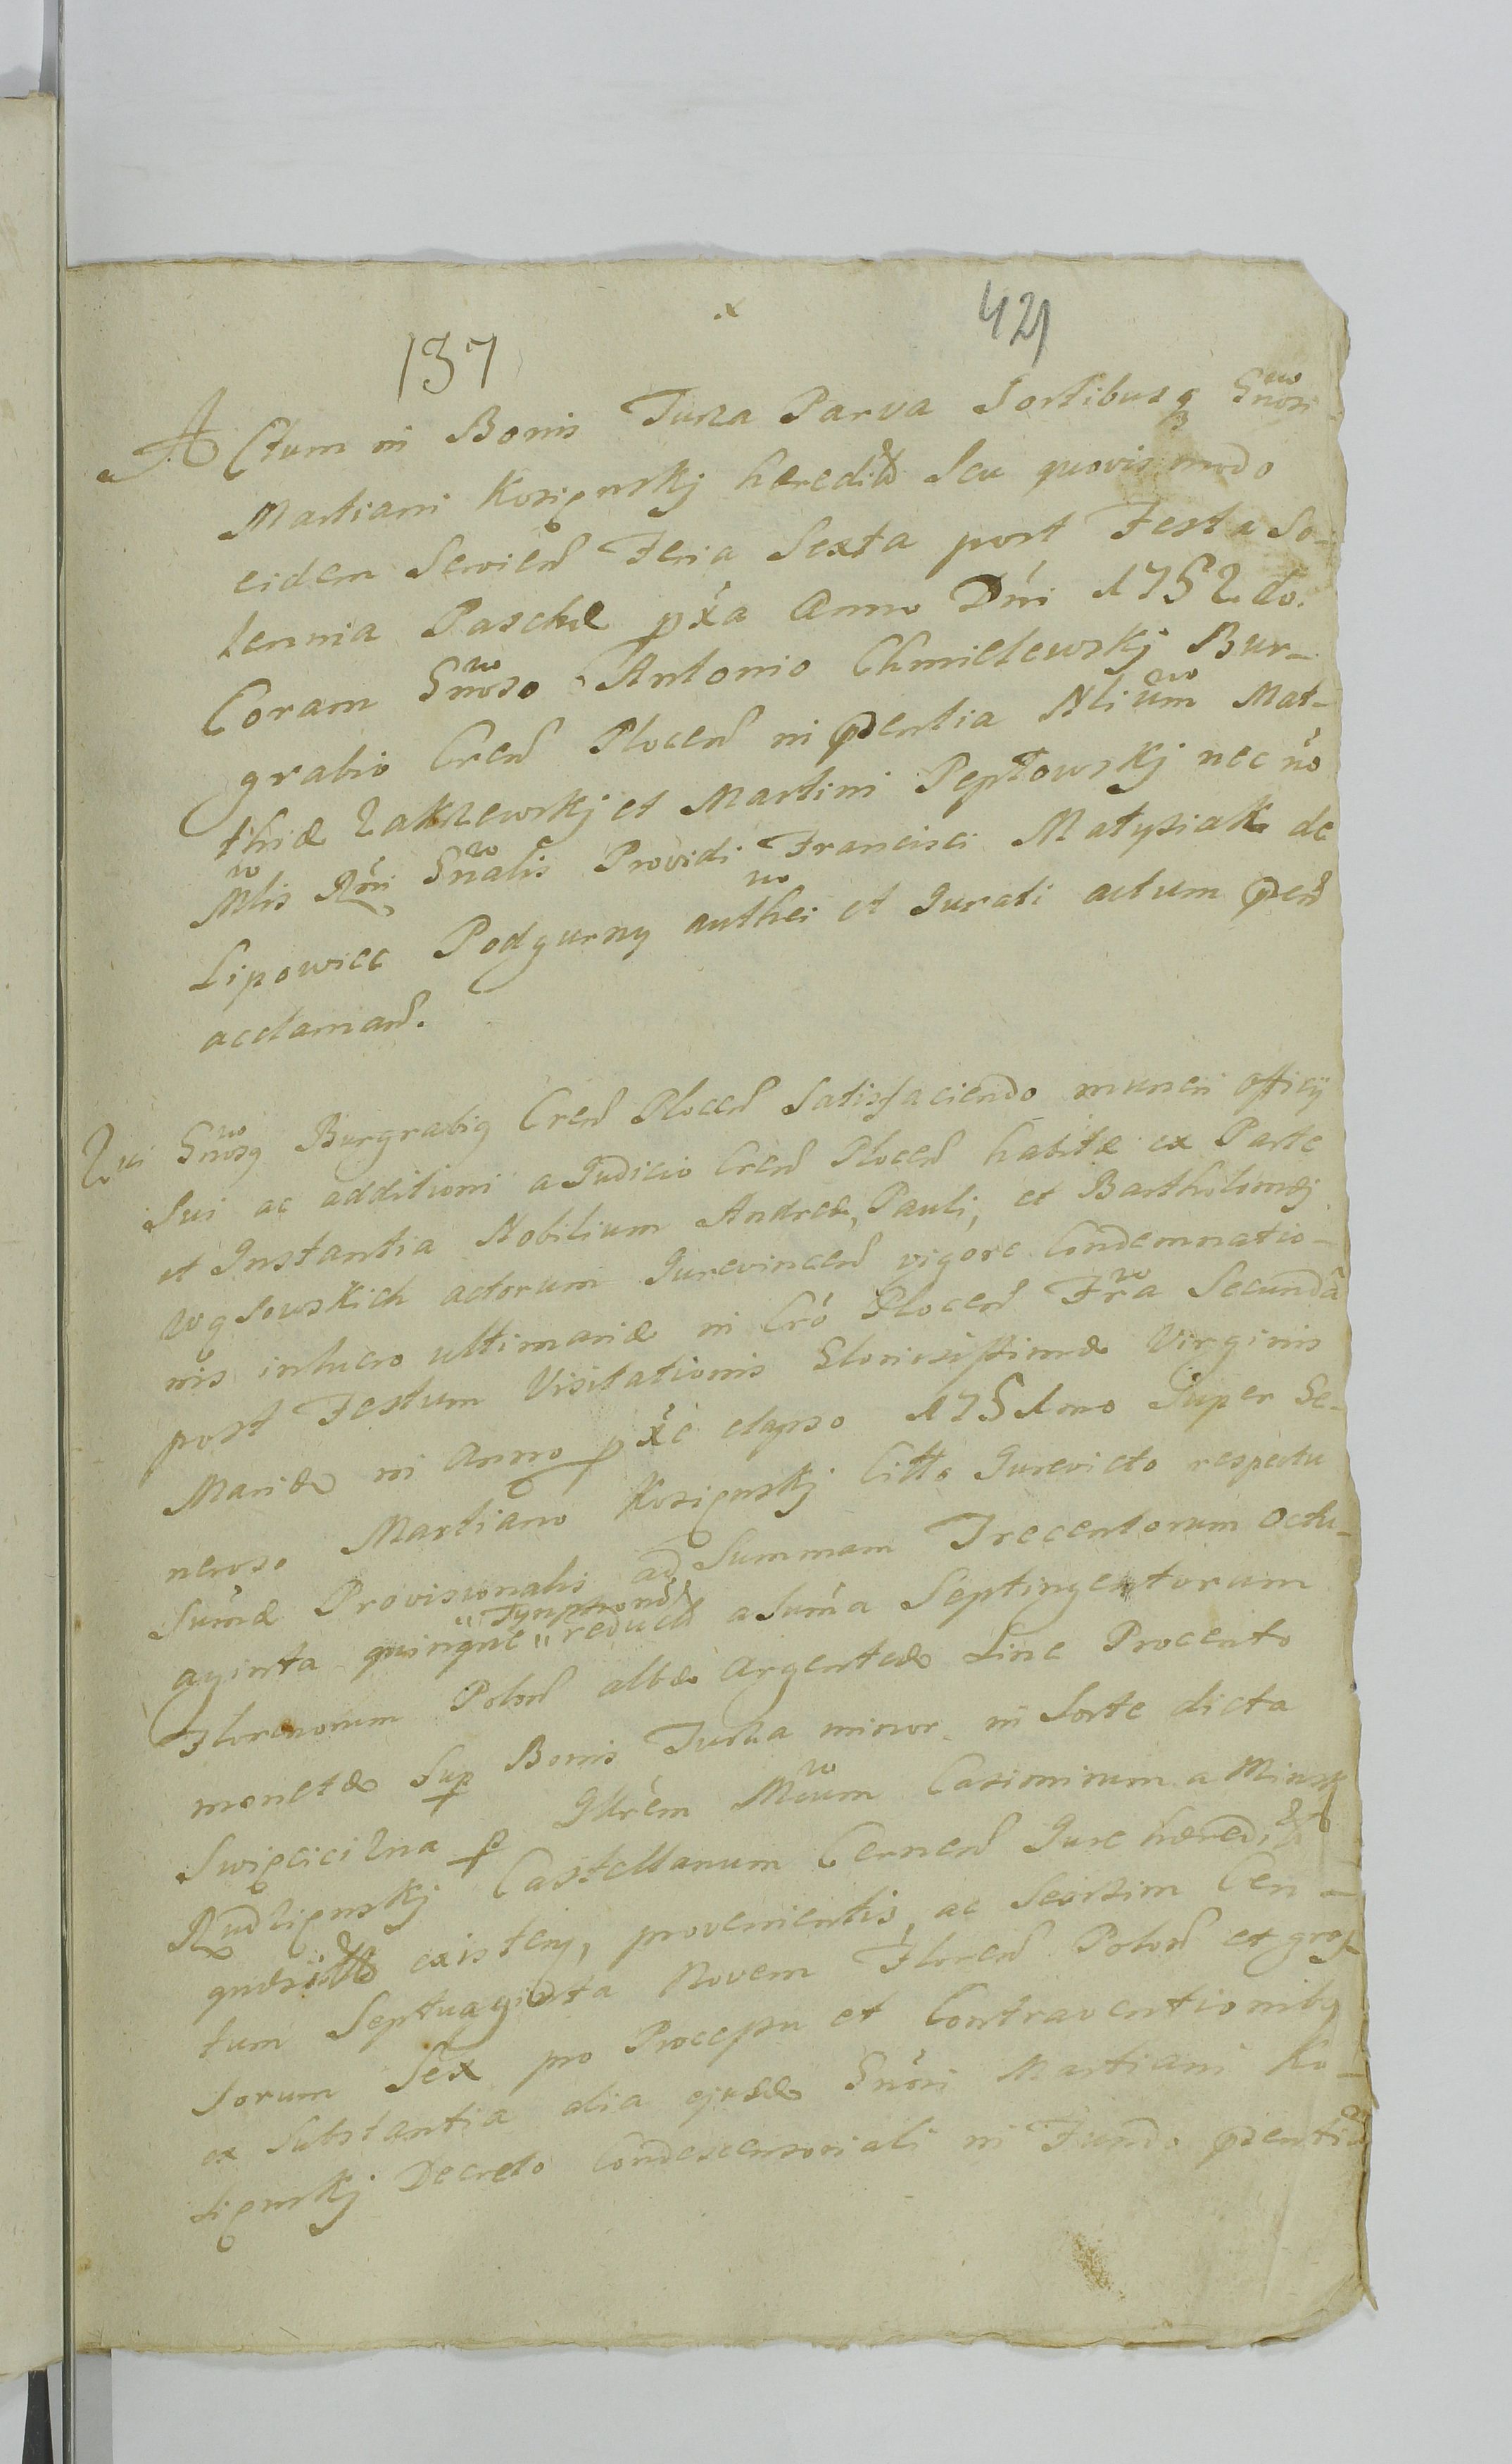 137
421
Actum in Bonis Turza Parva Sortibusq Gnosi
Martiani Kosięnskj heredit Seu quovis modo
eidem Servien Feria Sexta post Festa So-
lennia Paschæ pxa Anno Dni 1752do.
Coram Gnoso Antonio Chmielewskj Bur-
grabio Cren Plocen in pntia Nlium Mat-
thiæ Zakrzewskj et Martini Pepłowskj nec no
Mlis Rni Gnalis Providi Francisci Matysiak de
Lipowiec Podgurny authei et Jurati actum pen
acclaman.
Qui Gnosq Burgrabiq Cren Plocen Satisfaciendo muneri officij
Sui ac additioni a Judicio Cren Plocen habitæ ex Parte
et Instantia Nobilium Andreæ, Pauli, et Bartholomæj
Wąsowskich actorum Jurevincen vigore Condemnatio-
nis in lucro ultimariæ in Cro Plocen Fra Secunda
post Festum Visitationis Gloriosissimæ Virginis
Mariæ in Anno pxe elapso 1751mo Super Ge-
neroso Martiano Kosięnskj Citto Jurevicto respectu
Sumæ Provisionalis ad Summam Trecentorum Octu-
aginta quinque " Tynphon " reduct a Suma Septingentorum
Florenorum Polon albæ Argenteæ Sine Procento
monetæ Sup Bonis Turza minor in Sorte dicta
Swięcicizna p Illrem Mcum Casimirum a Minsk
Rudzięnskj Castellanum Cernen Jure heredit
quæsitto existen, provenientis, ac Seorsim Cen-
tum Septuaginta Novem Floren Polon et gros-
sorum Sex pro Processu et Contraventionibq
ex Substantia alia ejusdæ Gnosi Martiani Ko-
sięnskj Decreto Condescensoriali in Fundo pentiæ